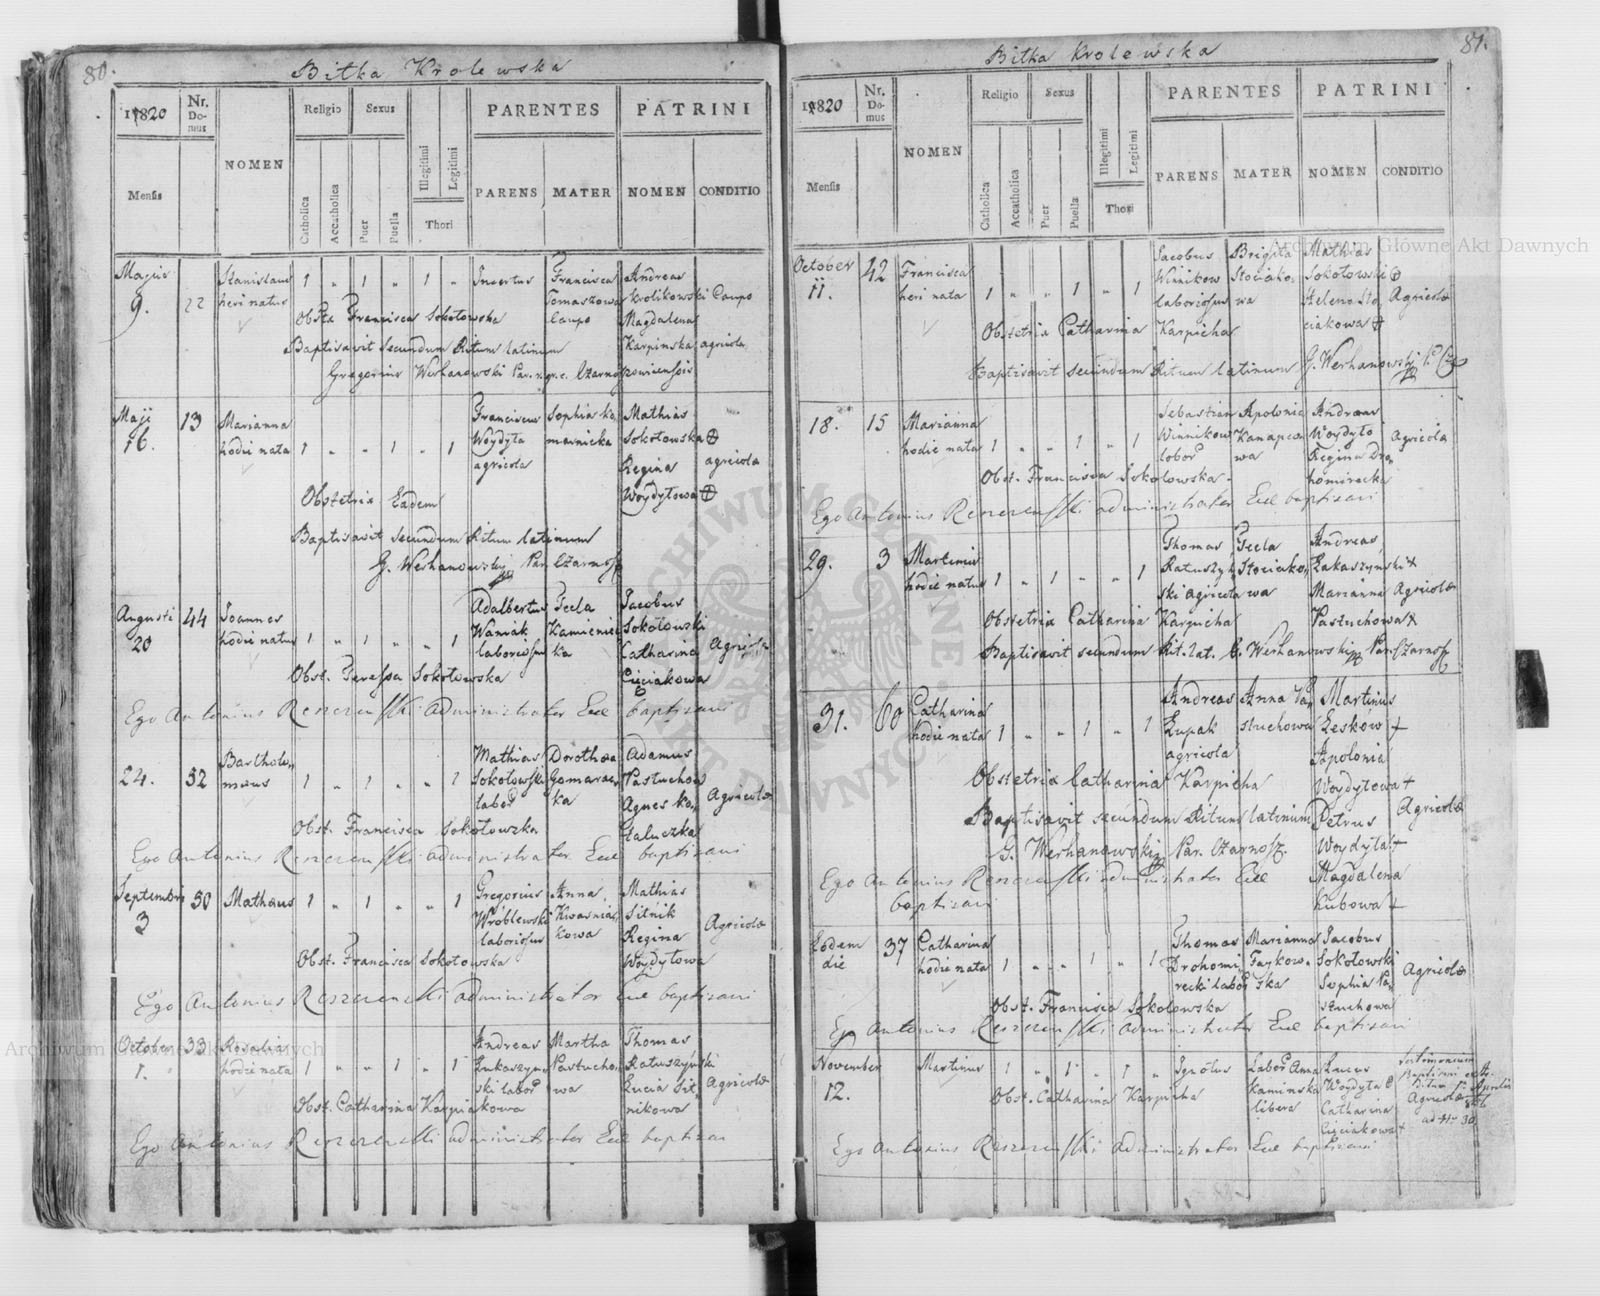 80.
Bitka Krolewska
1820
Nr. Domus
NOMEN
Religio
Sexus
Illegitimi
Legitimi
Thori
PARENTES
PATRINI
Mensis
Catholica
Accatholica
Puer
Puella
PARENS
MATER
NOMEN
CONDITIO
Majus 9. 22 Stanislaus heri natus 1 „ 1 „ 1 „ Incertus
Francisca Tomaszowa Caupo
Andreas Krolikowski Caupo
Magdalena Karpinska agricola
Obsta Francisca Sokołowska
Baptisavit secundum Ritum latinum
Gregorius Werhanowski Par. r. gr. c.
Maji 16. 13 Marianna hodie nata 1 „ „ 1 „ 1
Franciscus Woydyta agricola
Sophia
Mathias Sokołowska
Regina Woydytowa agricola
Obstetrix Eadem
Baptisavit secundum Ritum latinum
G. Werhanowski Par. Czarnosz
Augusti 20 44 Joannes hodie natus 1 „ 1 „ „ 1
Adalbertus Waniak laboriosus
Tecla Kamienicka
Jacobus Sokołowski
Catharina Cuciakowa
Agricolæ
Obst. Teressa Sokołowska
Ego Antonius administrator Eccl baptisavi
24. 52 Bartholomæus 1 „ 1 „ „ 1
Mathias Sokołowski labor
Dorothæa
Adamus Pastuchow
Agnes
Agricolæ
Obst. Francisca Sokołowska
Ego Antonius administrator Eccl baptisavi
Septembris 3 50 Mathæus 1 „ 1 „ „ 1
Gregorius Wróblewski laboriosus
Anna Kwasniakowa
Mathias Sitnik
Regina Woydytowa
Agricolæ
Obst. Francisca Sokołowska
Ego Antonius administrator Eccl baptisavi
October 1. 33 Rosalia hodie nata 1 „ „ 1 „ 1
Andreas Łukaszynski labor
Martha Pastuchowa
Thomas Ratuszynski
Lucia Sitnikowa
Agricolæ
Obst. Catharina Karpiakowa
Ego Antonius administrator Eccl baptisavi
81.
Bitka Krolewska
1820
Nr. Domus
NOMEN
Religio
Sexus
Illegitimi
Legitimi
Thori
PARENTES
PATRINI
Mensis
Catholica
Accatholica
Puer
Puella
PARENS
MATER
NOMEN
CONDITIO
October 11. 42 Francisca heri nata 1 „ „ 1 „ 1
Jacobus Winikow laboriosus
Brigita Stociakowa
Mathias Sokołowski
Helena Stociakowa
Agricolæ
Obstetrix Catharina Karpicha
Baptisavit secundum Ritum latinum G. Werhanowski
18. 15 Marianna hodie nata 1 „ „ 1 „ 1
Sebastian Winnikow labor
Apolonia
Andreas Woydyło
Regina Drohomirecka
Agricolæ
Obst. Francisca Sokolowska
Ego Antonius administrator Eccl baptisavi
29. 3 Martinus hodie natus 1 „ 1 „ „ 1
Thomas Ratuszynski agricola
Tecla Stociakowa
Andreas Łukaszynski
Marianna Pastuchowa
Agricolæ
Obstetrix Catharina Karpicha
Baptisavit secundum Rit. lat. G. Werhanowski Par. Czarnosz
31. 60 Catharina hodie nata 1 „ „ 1 „ 1
Andreas Łupak agricola
Anna Pastuchowa
Martinus Leskow
Apolonia Woydytowa
Petrus Woydyła
Magdalena Kubowa
Agricolæ
Obstetrix Catharina Karpicha
Baptisavit secundum Ritum latinum
G. Werhanowski Par. Czarnosz.
Ego Antonius administrator Eccl baptisavi
Eodem die 37 Catharina hodie nata 1 „ „ 1 „ 1
Thomas Drohomirecki labor
Marianna
Jacobus Sokołowski
Sophia Pastuchowa
Agricolæ
Obst. Francisca Sokolowska
Ego Antonius administrator Eccl baptisavi
November 12. Martinus 1 „ 1 „ 1 „ Ignotus
Labor Anna Kaminska libera
Lucas Woydyta
Catharina Cuciakowa
Agricolæ
Obst. Catharina Karpicha
Ego Antonius administrator Eccl baptisavi
Archiwum Główne Akt Dawnych
Archiwum Główne Akt Dawnych
ARCHIWUM GŁÓWNE AKT DAWNYCH